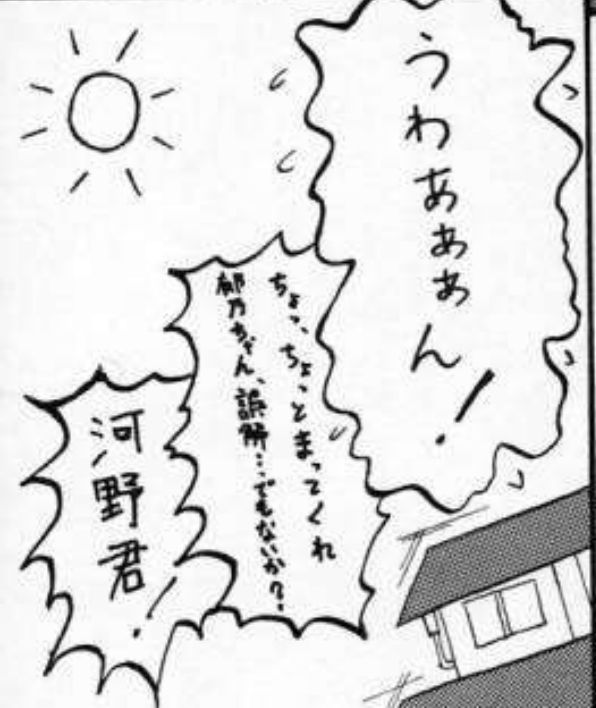 うわあぁぁん!
ちょっ、ちょっとまってくれ
郁乃ちゃん、誤解…でもないか?
河野君!